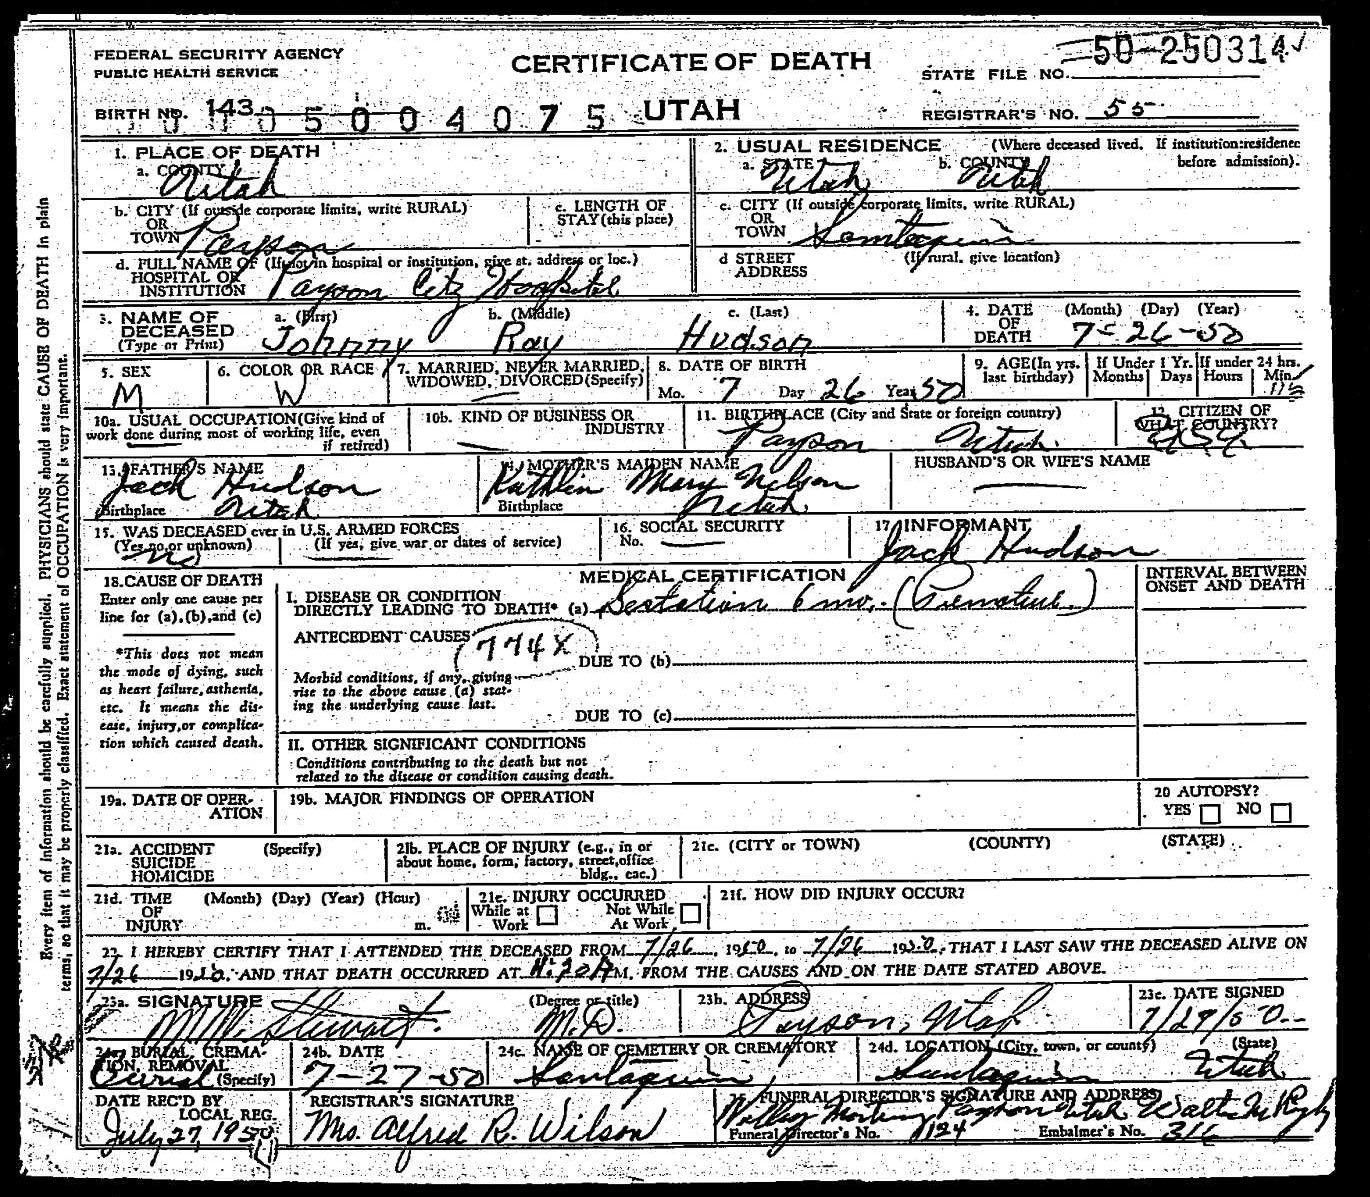 FEDERAL SECURITY AGENCY
PUBLIC HEALTH SERVICE
CERTIFICATE OF DEATH
STATE FILE NO. 50-250314
BIRTH NO. 143 05004075
UTAH
REGISTRAR'S NO. 55
1. PLACE OF DEATH
a. COUNTY Utah
2. USUAL RESIDENCE (Where deceased lived. If institution: residence before admission).
a. STATE Utah b. COUNTY Utah
b. CITY (If outside corporate limits, write RURAL) OR TOWN Payson
c. LENGTH OF STAY (this place)
c. CITY (If outside corporate limits, write RURAL) OR TOWN Santaquin
d. FULL NAME OF (If not in hospital or institution, give st. address or loc.) HOSPITAL OR INSTITUTION Payson City Hospital
d STREET ADDRESS (If rural, give location)
3. NAME OF DECEASED (Type or Print) a. (First) Johnny b. (Middle) Ray c. (Last) Hudson
4. DATE OF DEATH (Month) (Day) (Year) 7-26-50
5. SEX M
6. COLOR OR RACE W
7. MARRIED, NEVER MARRIED, WIDOWED, DIVORCED (Specify)
8. DATE OF BIRTH Mo. 7 Day 26 Year 50
9. AGE (In yrs. last birthday) If Under 1 Yr. Months Days If under 24 hrs. Hours Min.
10a. USUAL OCCUPATION (Give kind of work done during most of working life, even if retired)
10b. KIND OF BUSINESS OR INDUSTRY
11. BIRTHPLACE (City and State or foreign country) Payson Utah.
12. CITIZEN OF WHAT COUNTRY? USA
13. FATHER'S NAME Jack Hudson
Birthplace Utah
14. MOTHER'S MAIDEN NAME Kathlin Mary Nelson
Birthplace Utah.
HUSBAND'S OR WIFE'S NAME
15. WAS DECEASED ever in U.S. ARMED FORCES
(Yes, no, or unknown) (If yes, give war or dates of service)
no
16. SOCIAL SECURITY No.
17 INFORMANT
Jack Hudson
18. CAUSE OF DEATH
Enter only one cause per line for (a), (b), and (c)
*This does not mean the mode of dying, such as heart failure, asthenia, etc. It means the disease, injury, or complication which caused death.
MEDICAL CERTIFICATION
INTERVAL BETWEEN ONSET AND DEATH
I. DISEASE OR CONDITION DIRECTLY LEADING TO DEATH* (a) Gestation 6 mo. (Premature.)
ANTECEDENT CAUSES 774X
DUE TO (b)
Morbid conditions, if any, giving rise to the above cause (a) stating the underlying cause last.
DUE TO (c)
II. OTHER SIGNIFICANT CONDITIONS
Conditions contributing to the death but not related to the disease or condition causing death.
19a. DATE OF OPERATION
19b. MAJOR FINDINGS OF OPERATION
20 AUTOPSY?
YES NO
21a. ACCIDENT SUICIDE HOMICIDE (Specify)
21b. PLACE OF INJURY (e.g., in or about home, form, factory, street, office bldg., eac.)
21c. (CITY or TOWN) (COUNTY) (STATE)
21d. TIME OF INJURY (Month) (Day) (Year) (Hour) m.
21e. INJURY OCCURRED
While at Work Not While At Work
21f. HOW DID INJURY OCCUR?
22. I HEREBY CERTIFY THAT I ATTENDED THE DECEASED FROM 7/26 1950, to 7/26 1950, THAT I LAST SAW THE DECEASED ALIVE ON
7/26 1950. AND THAT DEATH OCCURRED AT M. FROM THE CAUSES AND ON THE DATE STATED ABOVE.
23a. SIGNATURE (Degree or title)
M.W. Stewart. M.D.
23b. ADDRESS
Payson, Utah
23c. DATE SIGNED
7/27/50
24a. BURIAL, CREMATION, REMOVAL (Specify) Burial
24b. DATE
7-27-50
24c. NAME OF CEMETERY OR CREMATORY
Santaquin
24d. LOCATION (City, town, or county) (State)
Santaquin Utah
DATE REC'D BY LOCAL REG.
July 27, 1950
REGISTRAR'S SIGNATURE
Mrs. Alfred R. Wilson
FUNERAL DIRECTOR'S SIGNATURE AND ADDRESS
Funeral Director's No. 124 Embalmer's No. 316
Every item of information should be carefully supplied. PHYSICIANS should state CAUSE OF DEATH in plain
terms, so that it may be properly classified. Exact statement of OCCUPATION is very important.